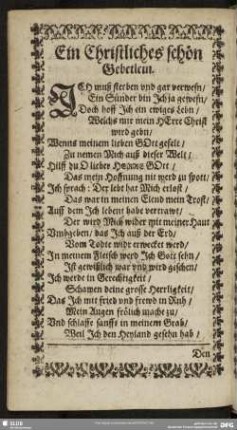 Ein Christliches schön
Gebetlein.
ICh muß sterben vnd gar verwesn/
Ein Sünder bin Ich ja gewesn/
Doch hoff Ich ein ewiges Lebn/
Welchs mir mein HErre Christ
wird gebn/
Wenns meinem lieben GOtt gefelt/
Zu nemen Mich auß dieser Welt/
Hilff du O lieber HErre GOtt/
Das mein Hoffnung nit werd zu spott/
Ich sprach: Der lebt hat Mich erlost/
Das war in meinen Elend mein Trost/
Auff dem Ich lebent habe vertrawt/
Der wird Mich wider mit meiner Haut
Vmbgeben/ das Ich auß der Erd/
Vom Todte widr erwecket werd/
In meinem Fleisch werd Ich Gott sehn/
Ist gewißlich war vnd wird geschen/
Ich werde in Gerechtigkeit/
Schawen deine grosse Herrligkeit/
Das Ich mit fried vnd frewd in Ruh/
Mein Augen frölich mache zu/
Vnd schlaffe sanfft in meinem Grab/
Weil Ich den Heyland gesehn hab/
Den
SLUB